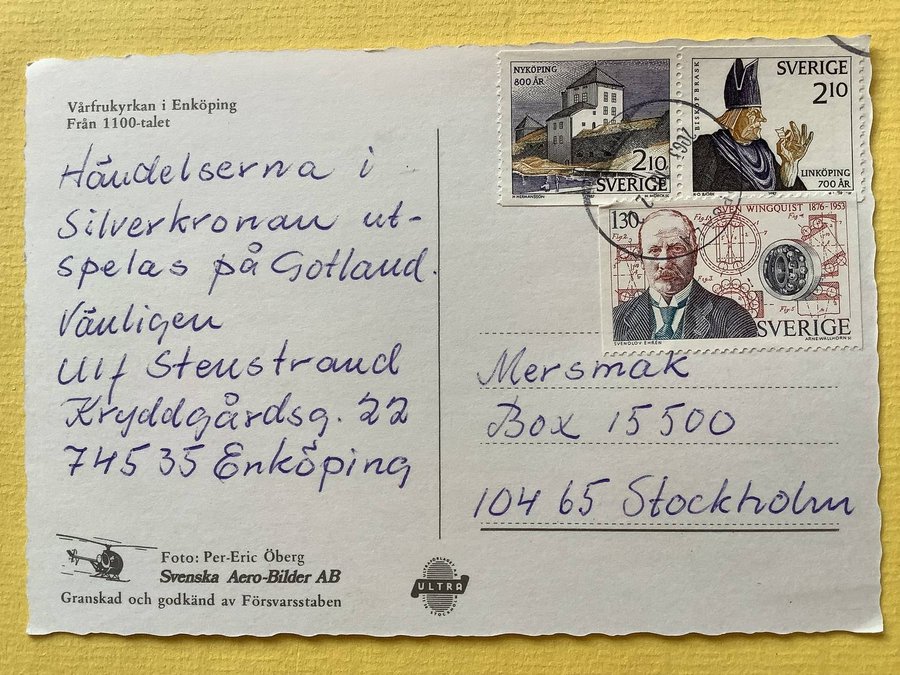 Vårfrukyrkan i Enköping
Från 1100-talet
Händelserna i
Silverkronan ut-
spelas på Gotland.
Vänligen
Ulf Stenstrand
Kryddgårdsg. 22
74535 Enköping
Foto: Per-Eric Öberg
Svenska Aero-Bilder AB
Granskad och godkänd av Försvarsstaben
ULTRA
NYKÖPING
800 ÅR
2 10
SVERIGE
SVERIGE
2 10
BISKOP BRASK
LINKÖPING
700 ÅR
130
SVEN WINGQUIST 1876-1953
Fig 2
Fig 1
Fig 4
Fig 3
Fig 5
SVERIGE
Mersmak
Box 15500
104 65 Stockholm